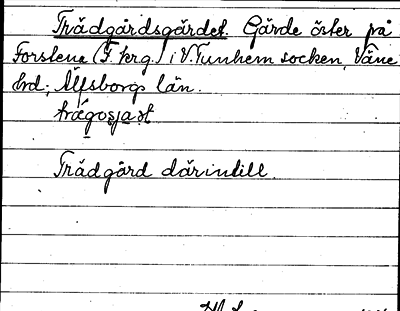 Trädgårdsgärdet. Gärde öster på
Forstena (F. krg.) i V. Tunhem socken, Väne
hd; Älfsborgs län.
trægosjast
Trädgård därintill.